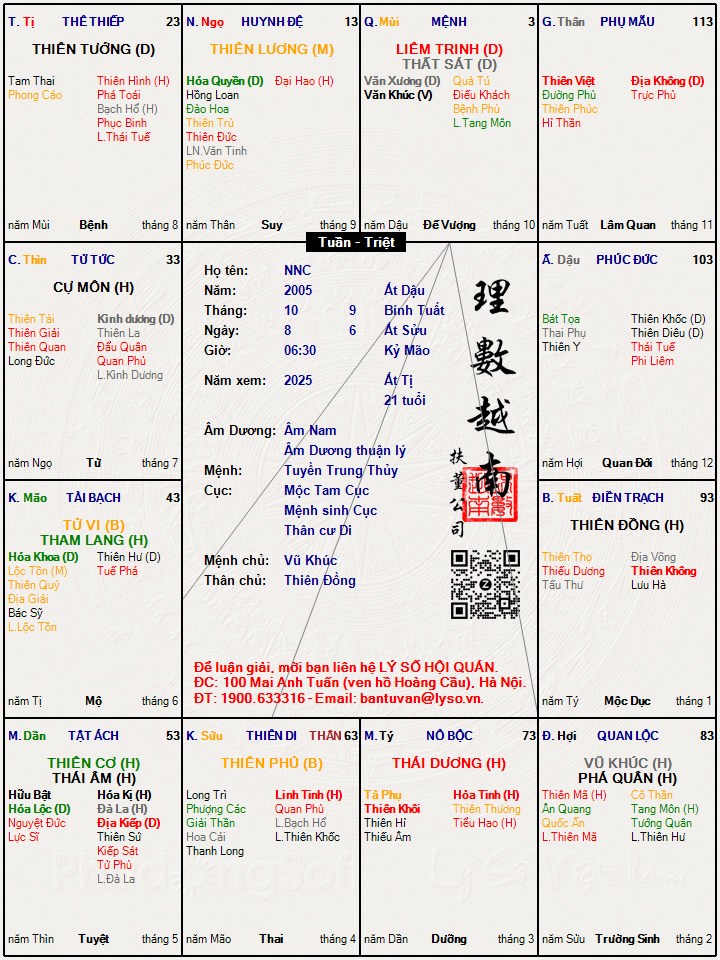 T. Tị THÊ THIẾP 23
THIÊN TƯỚNG (D)
Tam Thai Thiên Hình (H)
Phong Cáo Phá Toái
Bạch Hổ (H)
Phục Binh
L.Thái Tuế
năm Mùi Bệnh tháng 8
N. Ngọ HUYNH ĐỆ 13
THIÊN LƯƠNG (M)
Hóa Quyền (D) Đại Hao (H)
Hồng Loan
Đào Hoa
Thiên Trù
Thiên Đức
LN.Văn Tinh
Phúc Đức
năm Thân Suy tháng 9
Q. Mùi MỆNH 3
LIÊM TRINH (D)
THẤT SÁT (D)
Văn Xương (D) Quả Tú
Văn Khúc (V) Điếu Khách
Bệnh Phù
L.Tang Môn
năm Dậu Đế Vượng tháng 10
G. Thân PHỤ MẪU 113
Thiên Việt Địa Không (D)
Đường Phù Trực Phù
Thiên Phúc
Hỉ Thần
năm Tuất Lâm Quan tháng 11
Tuần - Triệt
C. Thìn TỬ TỨC 33
CỰ MÔN (H)
Thiên Tài Kình dương (D)
Thiên Giải Thiên La
Thiên Quan Đẩu Quân
Long Đức Quan Phủ
L.Kình Dương
năm Ngọ Tử tháng 7
Họ tên: NNC
Năm: 2005 Ất Dậu
Tháng: 10 9 Bính Tuất
Ngày: 8 6 Ất Sửu
Giờ: 06:30 Kỷ Mão
Năm xem: 2025 Ất Tị
21 tuổi
Âm Dương: Âm Nam
Âm Dương thuận lý
Mệnh: Tuyền Trung Thủy
Cục: Mộc Tam Cục
Mệnh sinh Cục
Thân cư Di
Mệnh chủ: Vũ Khúc
Thân chủ: Thiên Đồng
理數越南
扶董公司
Để luận giải, mời bạn liên hệ LÝ SỐ HỘI QUÁN.
ĐC: 100 Mai Anh Tuấn (ven hồ Hoàng Cầu), Hà Nội.
ĐT: 1900.633316 - Email: bantuvan@lyso.vn.
Ấ. Dậu PHÚC ĐỨC 103
Bát Tọa Thiên Khốc (D)
Thai Phụ Thiên Diêu (D)
Thiên Y Thái Tuế
Phi Liêm
năm Hợi Quan Đới tháng 12
K. Mão TÀI BẠCH 43
TỬ VI (B)
THAM LANG (H)
Hóa Khoa (D) Thiên Hư (D)
Lộc Tồn (M) Tuế Phá
Thiên Quý
Địa Giải
Bác Sỹ
L.Lộc Tồn
năm Tị Mộ tháng 6
B. Tuất ĐIỀN TRẠCH 93
THIÊN ĐỒNG (H)
Thiên Thọ Địa Võng
Thiếu Dương Thiên Không
Tấu Thư Lưu Hà
năm Tý Mộc Dục tháng 1
M. Dần TẬT ÁCH 53
THIÊN CƠ (H)
THÁI ÂM (H)
Hữu Bật Hóa Kị (H)
Hóa Lộc (D) Đà La (H)
Nguyệt Đức Địa Kiếp (D)
Lực Sĩ Thiên Sứ
Kiếp Sát
Tử Phù
L.Đà La
năm Thìn Tuyệt tháng 5
K. Sửu THIÊN DI THÂN 63
THIÊN PHỦ (B)
Long Trì Linh Tinh (H)
Phượng Các Quan Phù
Giải Thần L.Bạch Hổ
Hoa Cái L.Thiên Khốc
Thanh Long
năm Mão Thai tháng 4
M. Tý NÔ BỘC 73
THÁI DƯƠNG (H)
Tả Phụ Hỏa Tinh (H)
Thiên Khôi Thiên Thương
Thiên Hỉ Tiểu Hao (H)
Thiếu Âm
năm Dần Dưỡng tháng 3
Đ. Hợi QUAN LỘC 83
VŨ KHÚC (H)
PHÁ QUÂN (H)
Thiên Mã (H) Cô Thần
Ân Quang Tang Môn (H)
Quốc Ấn Tướng Quân
L.Thiên Mã L.Thiên Hư
năm Sửu Trường Sinh tháng 2